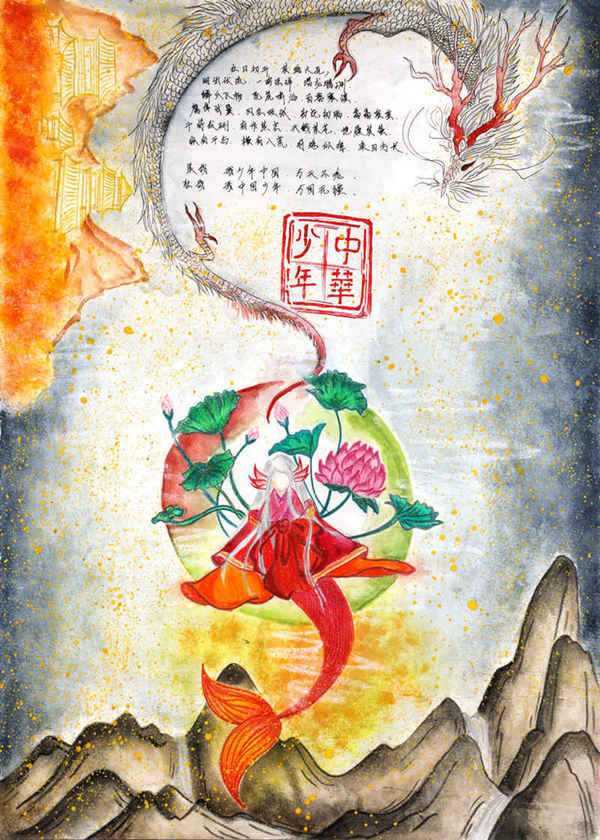 红日初升 其道大光,
河出伏流 一泻汪洋 潜龙腾渊
鳞爪飞扬 乳虎啸谷 百兽震惶
鹰隼试翼 风尘吸张 奇花初胎 矞矞皇皇
干将发硎 有作其芒 天戴其苍 地履其黄
纵有千古 横有八荒 前途似海 来日方长
美哉 我少年中国 与天不老.
壮哉 我中国少年 与国无疆.
中華
少年